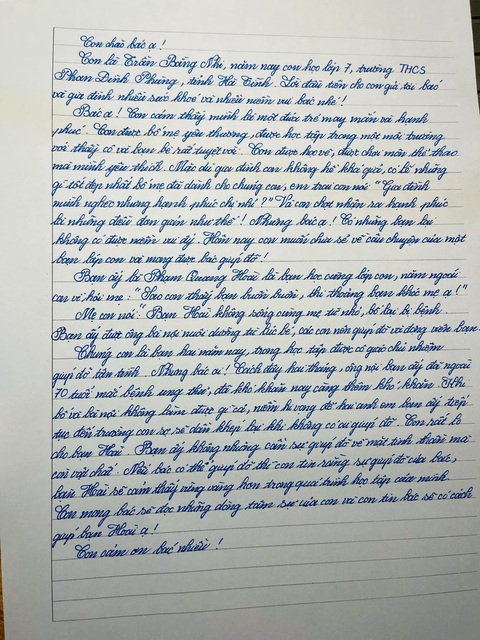 Con chào bác ạ!
Con là Trần Băng Nhi, năm nay con học lớp 7, trường THCS
Phan Đình Phùng, tỉnh Hà Tĩnh. Lời đầu tiên cho con gửi tới bác
và gia đình nhiều sức khoẻ và nhiều niềm vui bác nhé!
Bác ạ! Con cảm thấy mình là một đứa trẻ may mắn và hạnh
phúc. Con được bố mẹ yêu thương, được học tập trong một môi trường
với thầy cô và bạn bè rất tuyệt vời. Con được học vẽ, được chơi môn thể thao
mà mình yêu thích. Mặc dù gia đình con không hề khá giả, có lẽ những
gì tốt đẹp nhất bố mẹ đã dành cho chúng con, em trai con nói "Gia đình
mình nghèo nhưng hạnh phúc chị nhỉ?" Và con chợt nhận ra hạnh phúc
là những điều đơn giản như thế! Nhưng bác ạ! Có những bạn lại
không có được niềm vui ấy. Hôm nay con muốn chia sẻ về câu chuyện của một
bạn lớp con và mong được bác giúp đỡ!
Bạn ấy là Phạm Quang Hoài là bạn học cùng lớp con, năm ngoái
con về hỏi mẹ: "Sao con thấy bạn buồn buồn, thi thoảng bạn khóc mẹ ạ!"
Mẹ con nói: Bạn Hoài không sống cùng mẹ từ nhỏ, bố lại bị bệnh.
Bạn ấy được ông bà nội nuôi dưỡng từ lúc bé, các con nên giúp đỡ và động viên bạn.
Chúng con là bạn hai năm nay, trong học tập được cô giáo chủ nhiệm
giúp đỡ tận tình. Nhưng bác ơi! Cách đây hai tháng, ông nội bạn ấy đã ngoài
70 tuổi mắc bệnh ung thư, đã khó khăn nay càng thêm khó khăn. Khi
bố và bà nội không làm được gì cả, niềm hi vọng để hai anh em bạn ấy tiếp
tục đến trường con sợ sẽ dần khép lại khi không có ai giúp đỡ. Con rất lo
cho bạn Hoài. Bạn ấy không những cần sự giúp đỡ về mặt tinh thần mà
còn vật chất. Nếu bác có thể giúp đỡ thì con tin rằng sự giúp đỡ của bác,
bạn Hoài sẽ cảm thấy vững vàng hơn trong quá trình học tập của mình.
Con mong bác sẽ đọc những dòng tâm sự của con và con tin bác sẽ có cách
giúp bạn Hoài ạ!
Con cảm ơn bác nhiều!